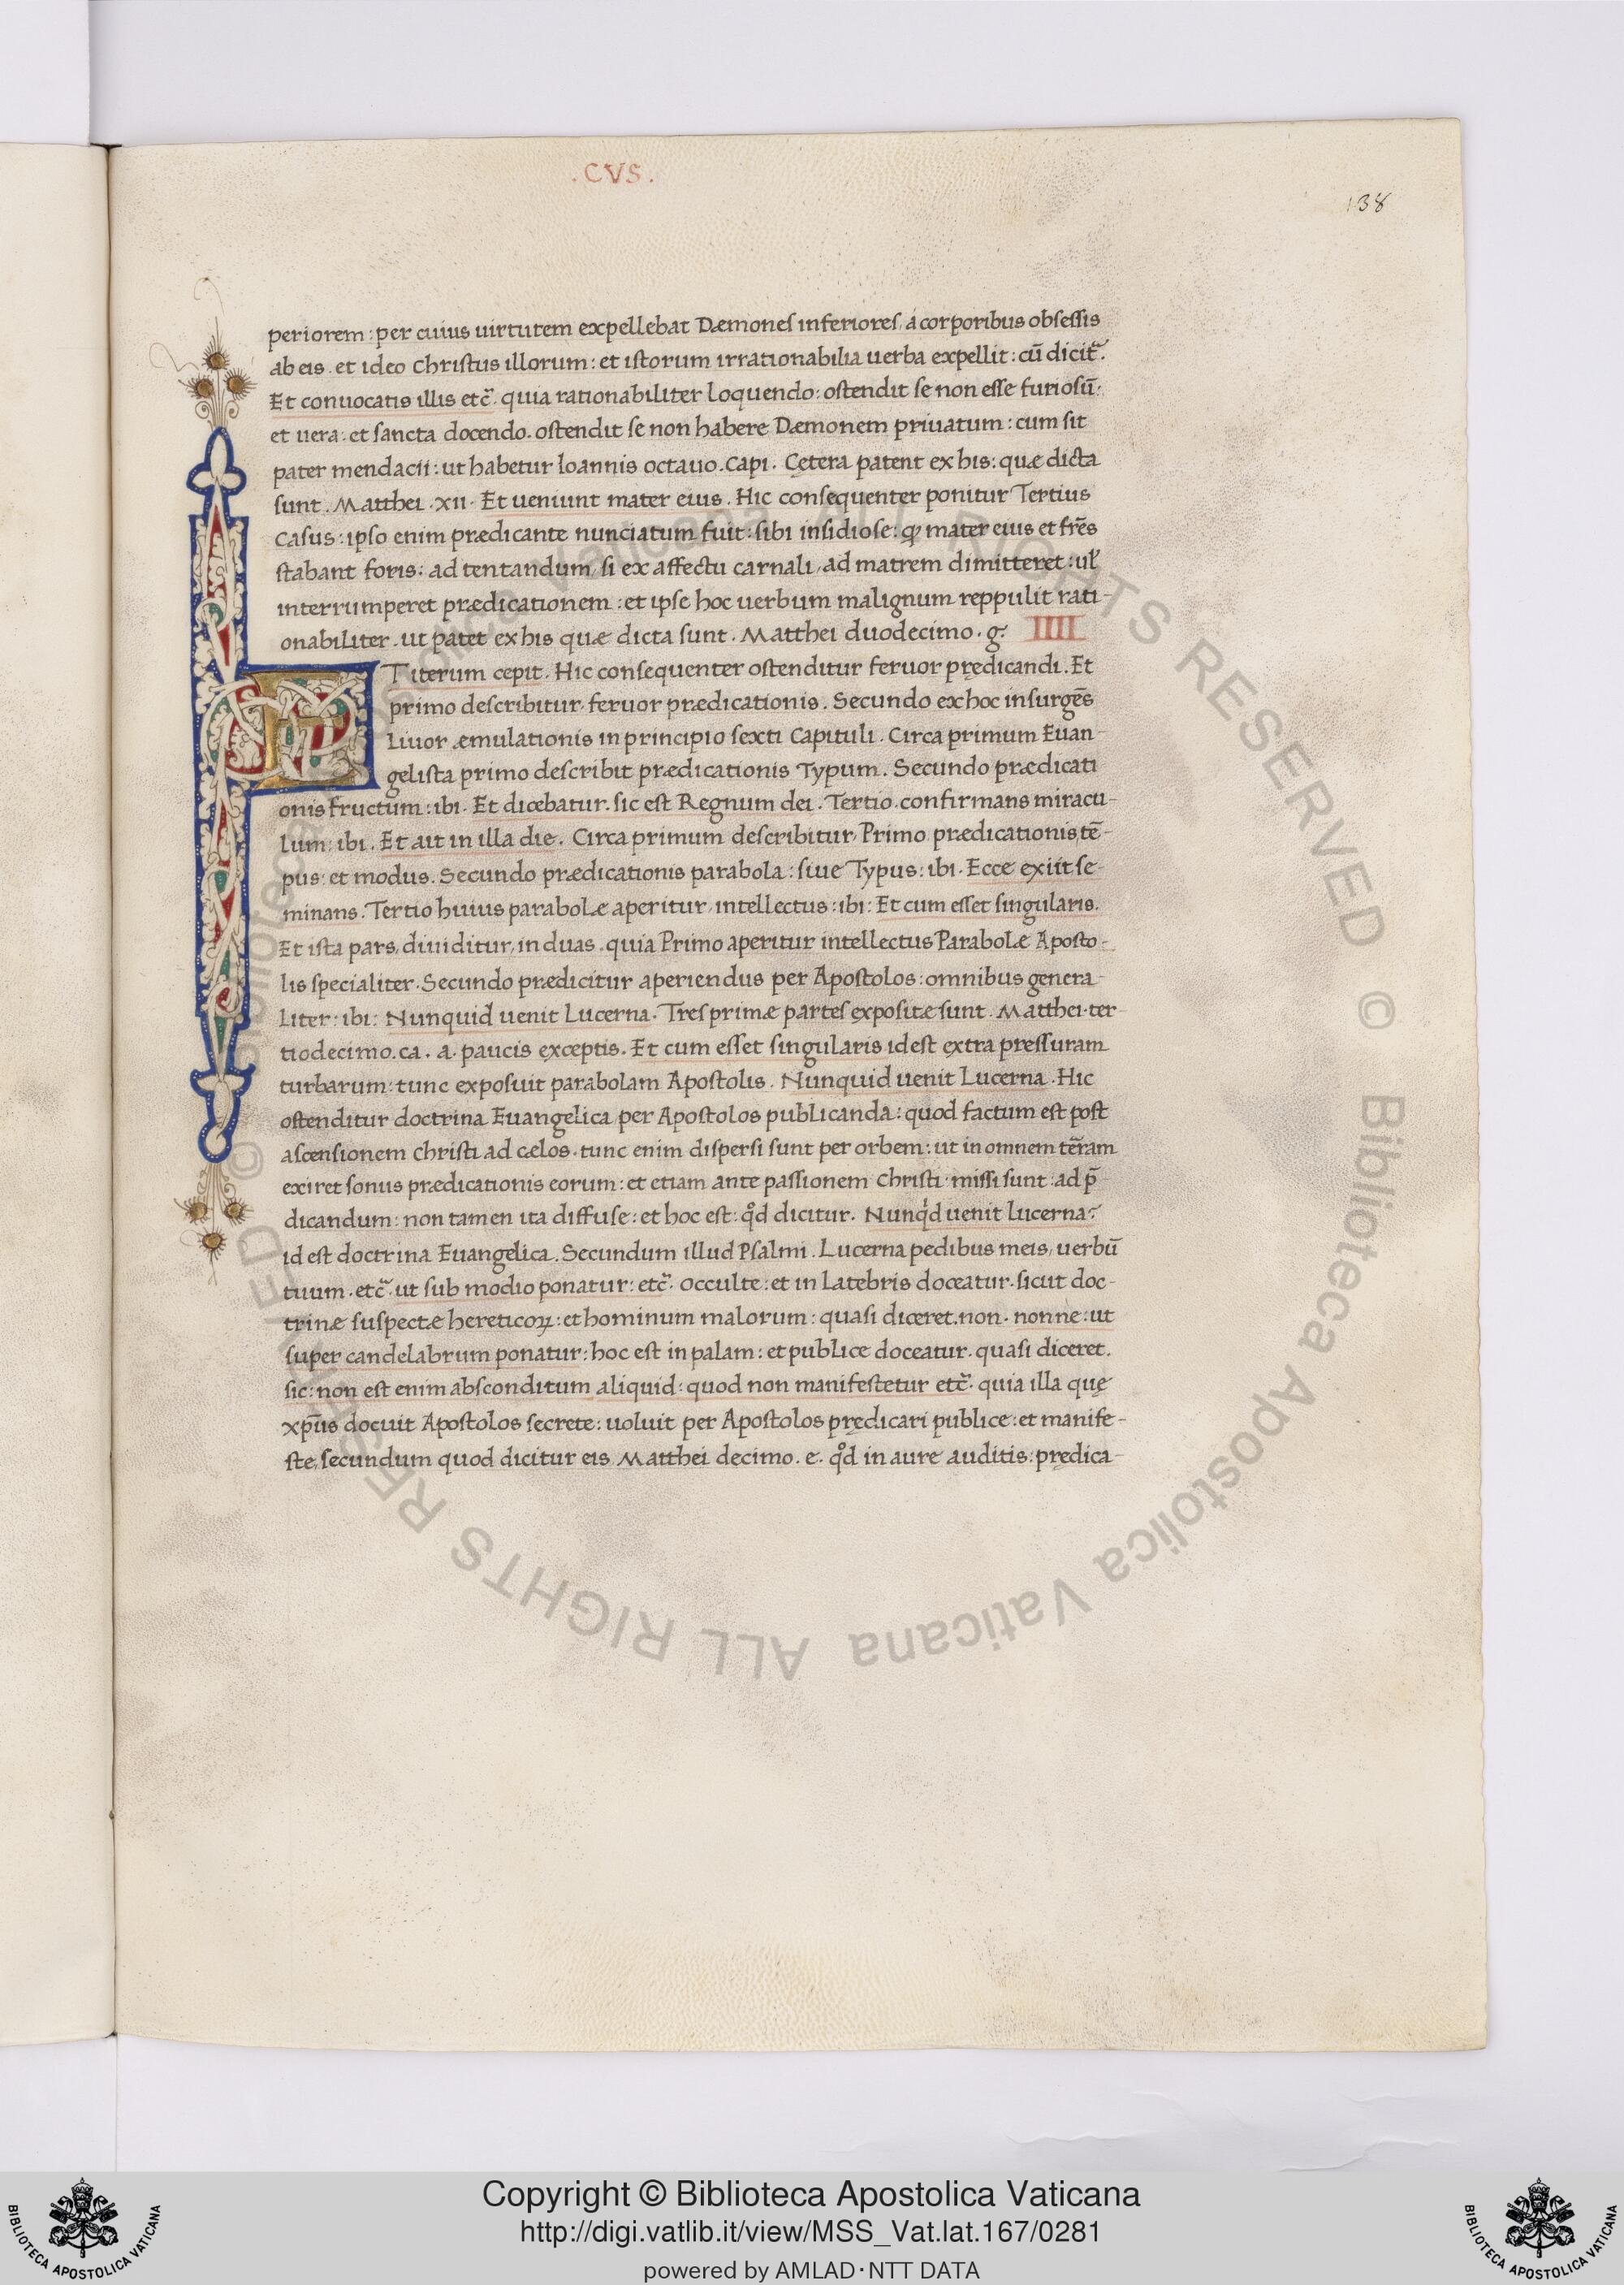 .CVS.
138
periorem: per cuius uirtutem expellebat Dæmones inferiores, a corporibus obsessis
ab eis. et ideo Christus illorum: et istorum irrationabilia uerba expellit: cū dicit̃.
Et conuocatis illis etc̃. quia rationabiliter loquendo: ostendit se non esse furiosū:
et uera: et sancta docendo. ostendit se non habere Dæmonem priuatum: cum sit
pater mendacii: ut habetur Ioannis octauo. Capi. Cętera patent ex his: quæ dicta
sunt. Matthei. xii. Et ueniunt mater eius. Hic consequenter ponitur Tertius
Casus: ipso enim prædicante nunciatum fuit: sibi insidiose: ꝙ mater eius et fr̃es
stabant foris: ad tentandum, si ex affectu carnali, ad matrem dimitteret: ul̃
interrumperet prædicationem: et ipse hoc uerbum malignum reppulit rati-
onabiliter. ut patet ex his quæ dicta sunt. Matthei duodecimo. g. IIII
ET iterum cepit. Hic consequenter ostenditur feruor prędicandi. Et
primo describitur, feruor prædicationis. Secundo ex hoc insurgēs
Liuor æmulationis in principio sexti Capituli. Circa primum Euan-
gelista primo describit prædicationis Typum. Secundo prædicati
onis fructum: ibi. Et dicebatur. sic est Regnum dei. Tertio. confirmans miracu-
lum: ibi. Et ait in illa die. Circa primum describitur, Primo prædicationis, tē-
pus: et modus. Secundo prædicationis parabola: siue Typus: ibi. Ecce exiit se-
minans. Tertio huius parabolæ aperitur, intellectus: ibi: Et cum esset singularis.
Et ista pars, diuiditur, in duas. quia Primo aperitur intellectus Parabolæ Aposto-
lis specialiter. Secundo prædicitur aperiendus per Apostolos: omnibus genera-
liter: ibi: Nunquid uenit Lucerna. Tres primæ partes expositæ sunt. Matthei. ter-
tiodecimo. ca. a. paucis exceptis. Et cum esset singularis idest extra pressuram
turbarum: tunc exposuit parabolam Apostolis. Nunquid uenit Lucerna. Hic
ostenditur doctrina Euangelica per Apostolos publicanda: quod factum est post
ascensionem Christi ad cælos. tunc enim dispersi sunt per orbem: ut in omnem tēram
exiret sonus prædicationis eorum: et etiam ante passionem Christi missi sunt: ad p̄
dicandum: non tamen ita diffuse: et hoc est: qᵒd dicitur. Nunqͥd uenit lucerna:
id est doctrina Euangelica. Secundum illud Psalmi. Lucerna pedibus meis, uerbū
tuum. etc̃. ut sub modio ponatur: etc̃. occulte: et in latebris doceatur. sicut doc-
trinæ suspectæ hereticoꝝ: et hominum malorum: quasi diceret. non. nonne: ut
super candelabrum ponatur: hoc est in palam: et publice doceatur. quasi diceret.
sic: non est enim absconditum aliquid: quod non manifestetur etc̃. quia illa quę
xp̄us docuit Apostolos secrete: uoluit per Apostolos prędicari publice: et manife-
ste, secundum quod dicitur eis Matthei decimo. e. qᵒd in aure auditis: prędica-
© Biblioteca Apostolica Vaticana ALL RIGHTS RESERVED
Copyright © Biblioteca Apostolica Vaticana
http://digi.vatlib.it/view/MSS_Vat.lat.167/0281
powered by AMLAD·NTT DATA
BIBLIOTECA APOSTOLICA VATICANA
BIBLIOTECA APOSTOLICA VATICANA